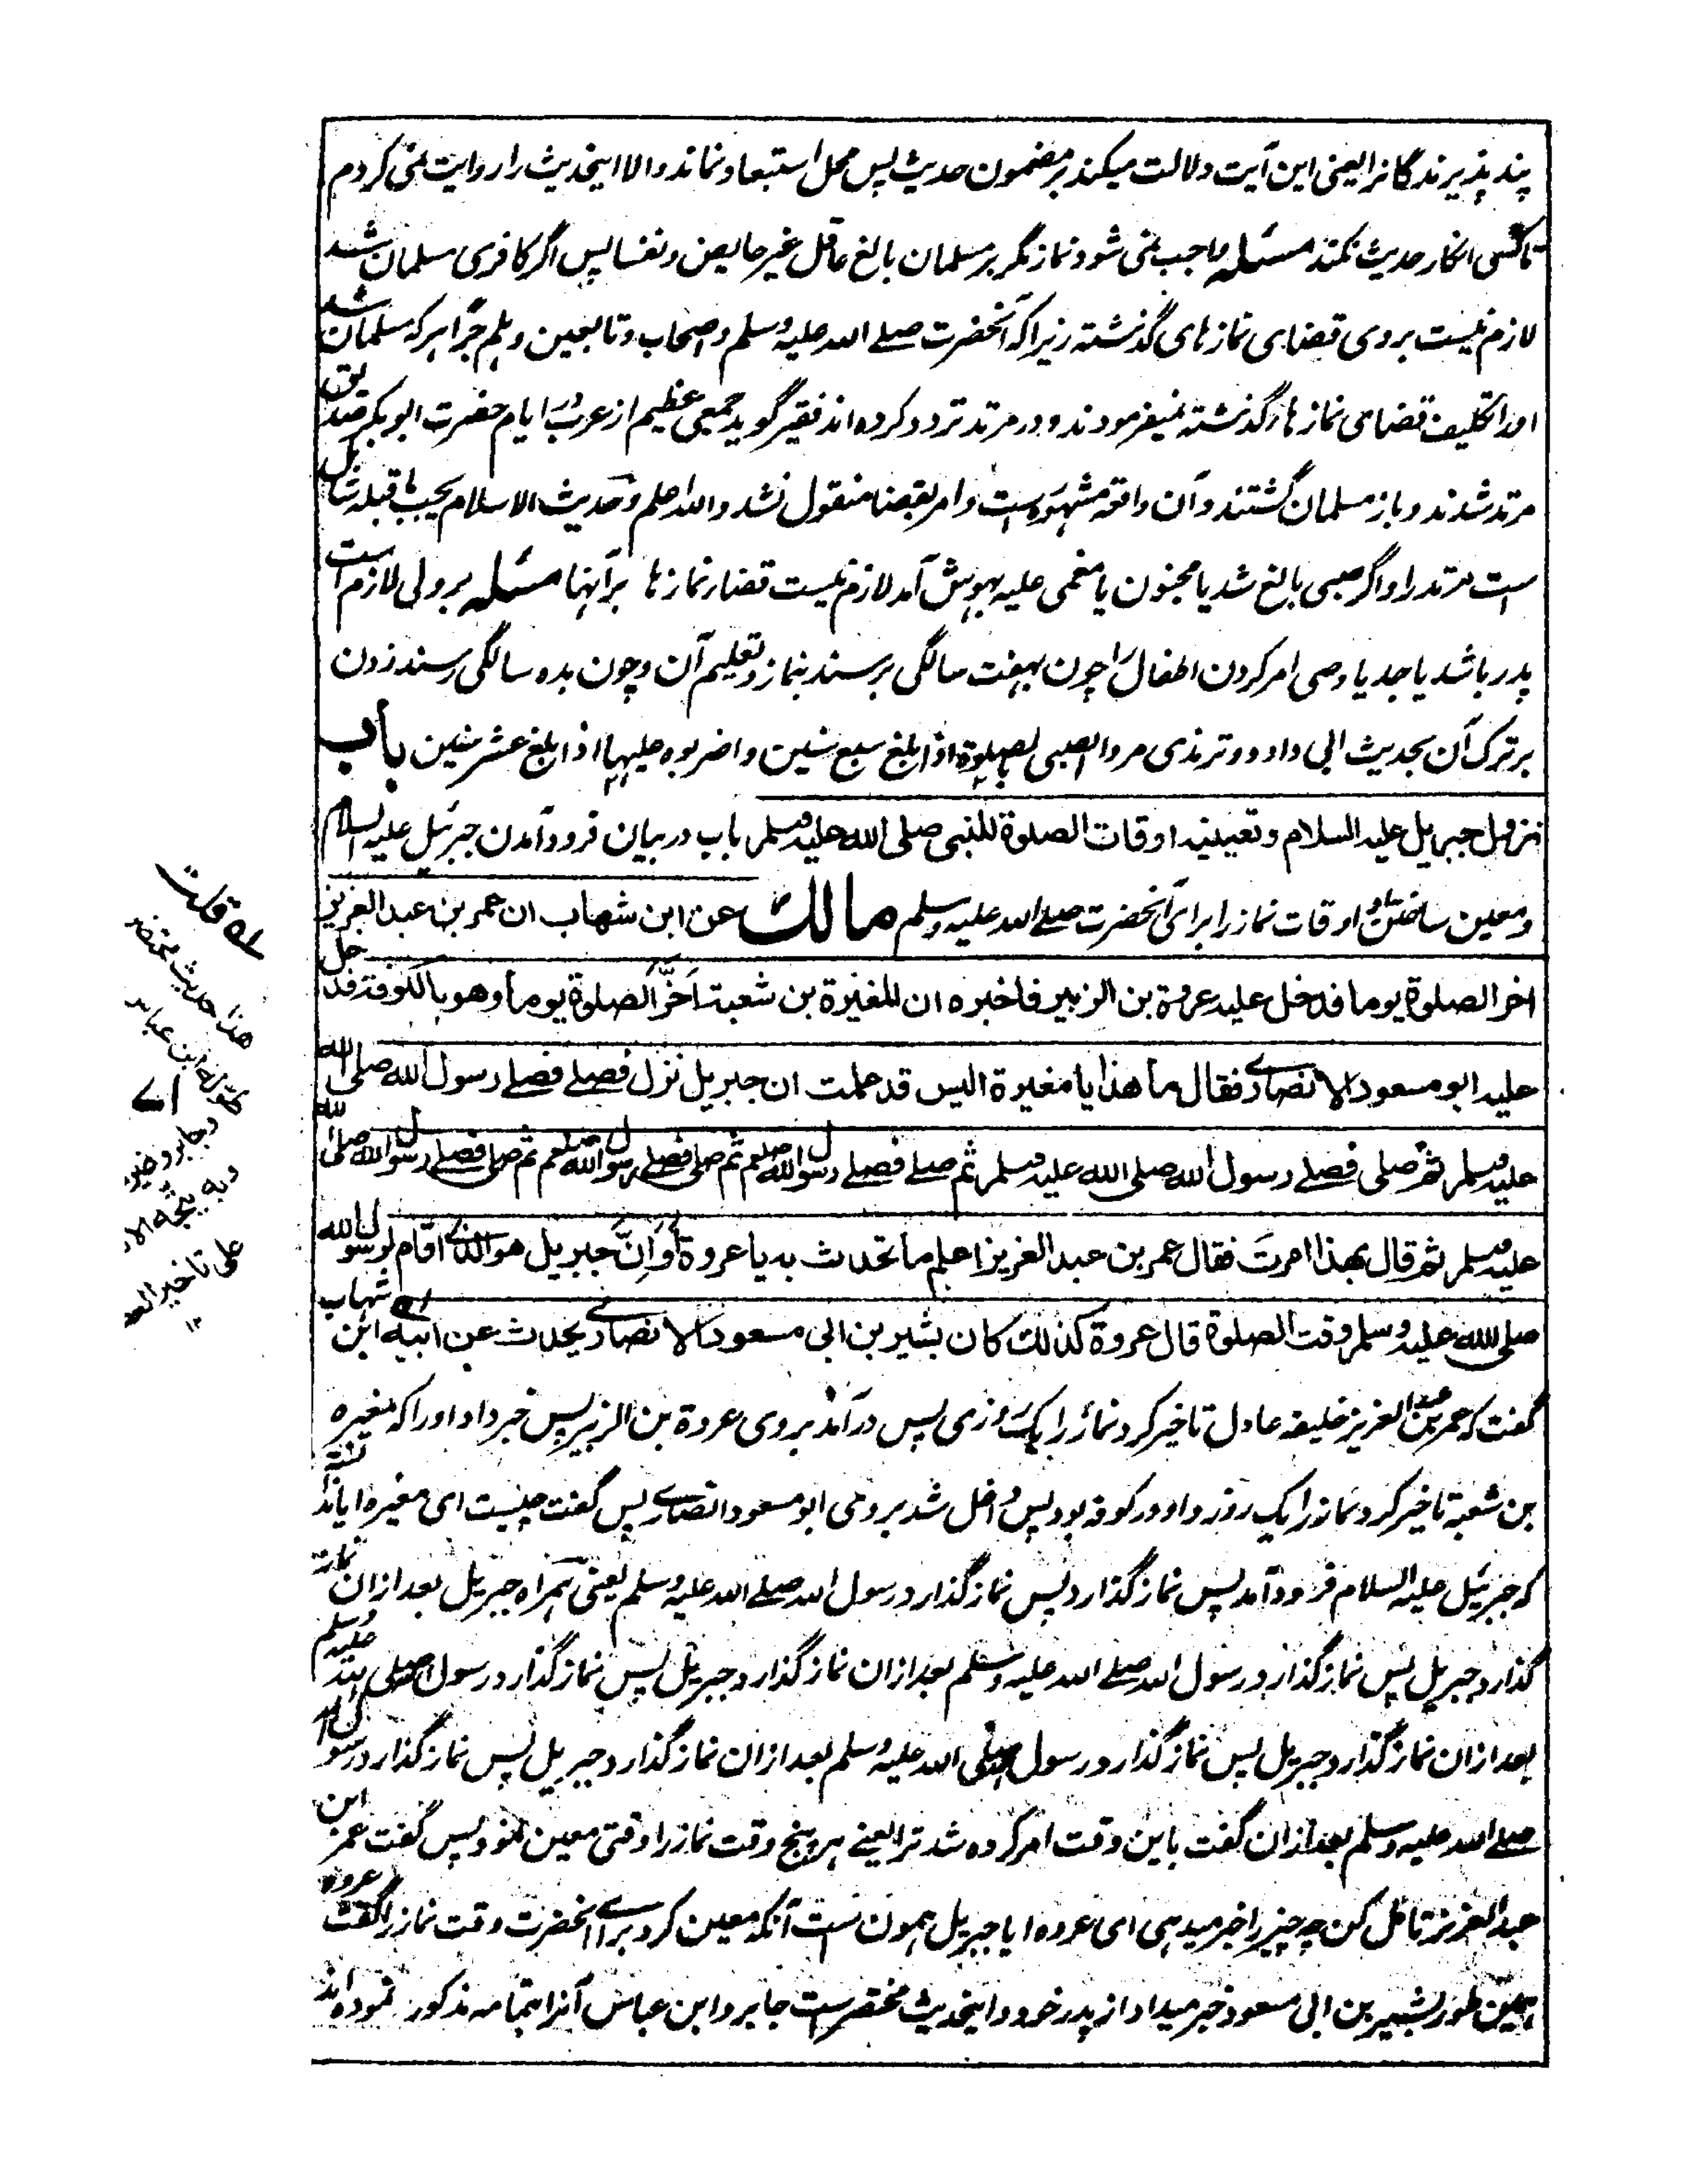 پند پذیرندگانرا یعنی این آیت دلالت میکند بر مضمون حدیث پس محل استبعاد نماند والا اینحدیث را روایت نمی کردم
تا کسی انکار حدیث نکند مسئله واجب نمی شود نماز مگر بر مسلمان بالغ عاقل غیر حایض و نفسا پس اگر کافری مسلمان شد
لازم نیست بروی قضای نمازهای گذشته زیرا که آنحضرت صلے الله علیه وسلم واصحاب وتابعین وهلم جرا هر که مسلمان شد
اورا تکلیف قضای نمازهاء گذشته نمیفرمودند و در مرتد تردد کرده اند فقیر گوید جمعی عظیم از عرب در ایام حضرت ابوبکر صدیق
مرتد شدند و باز مسلمان گشتند و آن واقعه مشهوره است وامر بقضا منقول نشد والله اعلم و حدیث الاسلام یجب ما قبله شامل
است مرتد را و اگر صبی بالغ شد یا مجنون یا مغمی علیه بهوش آمد لازم نیست قضاء نمازها برآنها مسئله بر ولی لازم است
پدر باشد یا جد یا وصی امر کردن اطفال را چون بهفت سالگی برسند بنماز و تعلیم آن و چون بده سالگی رسند زدن
بر ترک آن بحدیث ابی داود و ترمذی مروا الصبی بالصلوة اذا بلغ سبع سنین واضربوه علیها اذا بلغ عشر سنین باب
نزول جبریل علیه السلام وتعیینه اوقات الصلوة للنبی صلی الله علیه وسلم باب در بیان فرود آمدن جبرئیل علیه السلام
ومعین ساختن او اوقات نماز را برای آنحضرت صلے الله علیه وسلم مالك عن ابن شهاب ان عمر بن عبد العزیز
اخر الصلوة یوما فدخل علیه عروة بن الزبیر فاخبره ان المغیرة بن شعبة اخّر الصلوة یوما وهو بالکوفة فدخل
علیه ابو مسعود الانصاری فقال ما هذا یا مغیرة الیس قد علمت ان جبریل نزل فصلے فصلے رسول الله صلی الله
علیه وسلم ثم صلی فصلے رسول الله صلی الله علیه وسلم ثم صلے فصلے رسول الله صلعم ثم صلی فصلے رسول الله صلعم ثم صلی فصلے رسول الله صلی الله
علیه وسلم ثم قال بهذا امرتَ فقال عمر بن عبد العزیز اعلم ما تحدث به یا عروة أَوَ اِنَّ جبریل هو الذی اقام لرسول الله
صلی الله علیه وسلم وقت الصلوة قال عروة کذلك کان بشیر بن ابی مسعود الانصاری یحدث عن ابیه ابن شهاب
گفت که عمر بن عبد العزیز خلیفه عادل تاخیر کرد نماز را یک روزی پس درآمد بروی عروة بن الزبیر پس خبر داد اورا که مغیره
بن شعبة تاخیر کرد نماز را یک روز و او در کوفه بود پس داخل شد بروی ابو مسعود انصاری پس گفت چیست ای مغیره ایا ندانسته
که جبرئیل علیه السلام فرود آمد پس نماز گذارد پس نماز گذارد رسول الله صلے الله علیه وسلم یعنی همراه جبریل بعد ازان نماز
گذارد جبریل پس نماز گذارد رسول الله صلے الله علیه وسلم بعد ازان نماز گذارد جبریل پس نماز گذارد رسول الله صلی الله علیه وسلم
بعد ازان نماز گذارد جبریل پس نماز گذارد رسول الله صلی الله علیه وسلم بعد ازان نماز گذارد جبریل پس نماز گذارد رسول الله
صلے الله علیه وسلم بعد ازان گفت باین وقت امر کرده شد ترا یعنے هر پنج وقت نماز را وقتی معین نمود پس گفت عمر ابن
عبد العزیز تامل کن چه چیز را خبر میدهی ای عروه ایا جبریل همون است آنکه معین کرد برای آنحضرت وقت نماز را گفت عروه
همین طور بشیر بن ابی مسعود خبر میداد از پدر خود و اینحدیث مختصر است جابر و ابن عباس آنرا بتمامه مذکور نموده اند
له قلت
هذا حدیث مختصر
طوله ابن عباس
وجابر وغیره
علی تاخیر العصر
۱۲